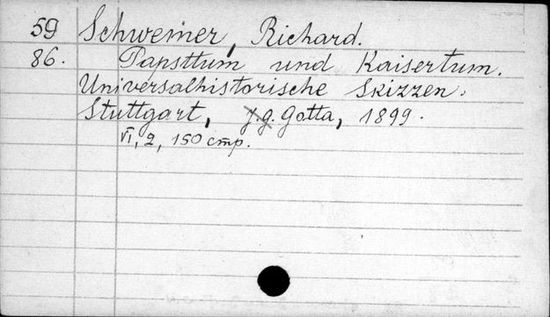 59 Schwemer, Richard.
86. Papsttum und Kaisertum.
Universalhistorische Skizzen.
Stuttgart, J.G. Gotta, 1899.
VI, 2, 150 cmp.